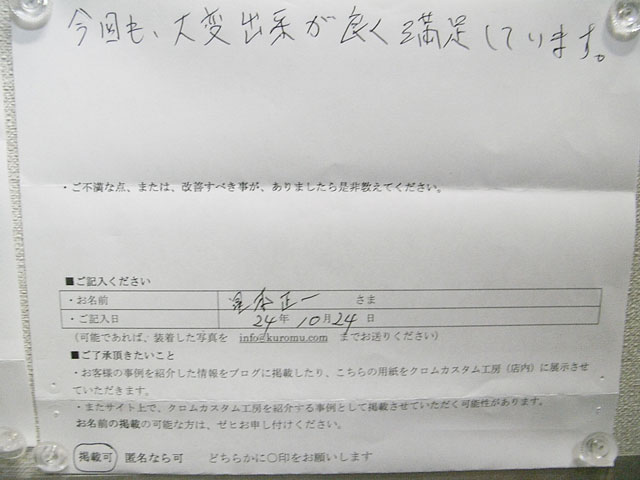 今回も、大変出来が良く満足しています。
・ご不満な点、または、改善すべき事が、ありましたら是非教えてください。
■ご記入ください
・お名前 正一 さま
・ご記入日 24年 10月 24日
(可能であれば、装着した写真を info@kuromu.com までお送りください)
■ご了承頂きたいこと
・お客様の事例を紹介した情報をブログに掲載したり、こちらの用紙をクロムカスタム工房(店内)に展示させ
ていただきます。
・またサイト上で、クロムカスタム工房を紹介する事例として掲載させていただく可能性があります。
お名前の掲載の可能な方は、ゼヒお申し付けください。
掲載可 匿名なら可 どちらかに〇印をお願いします